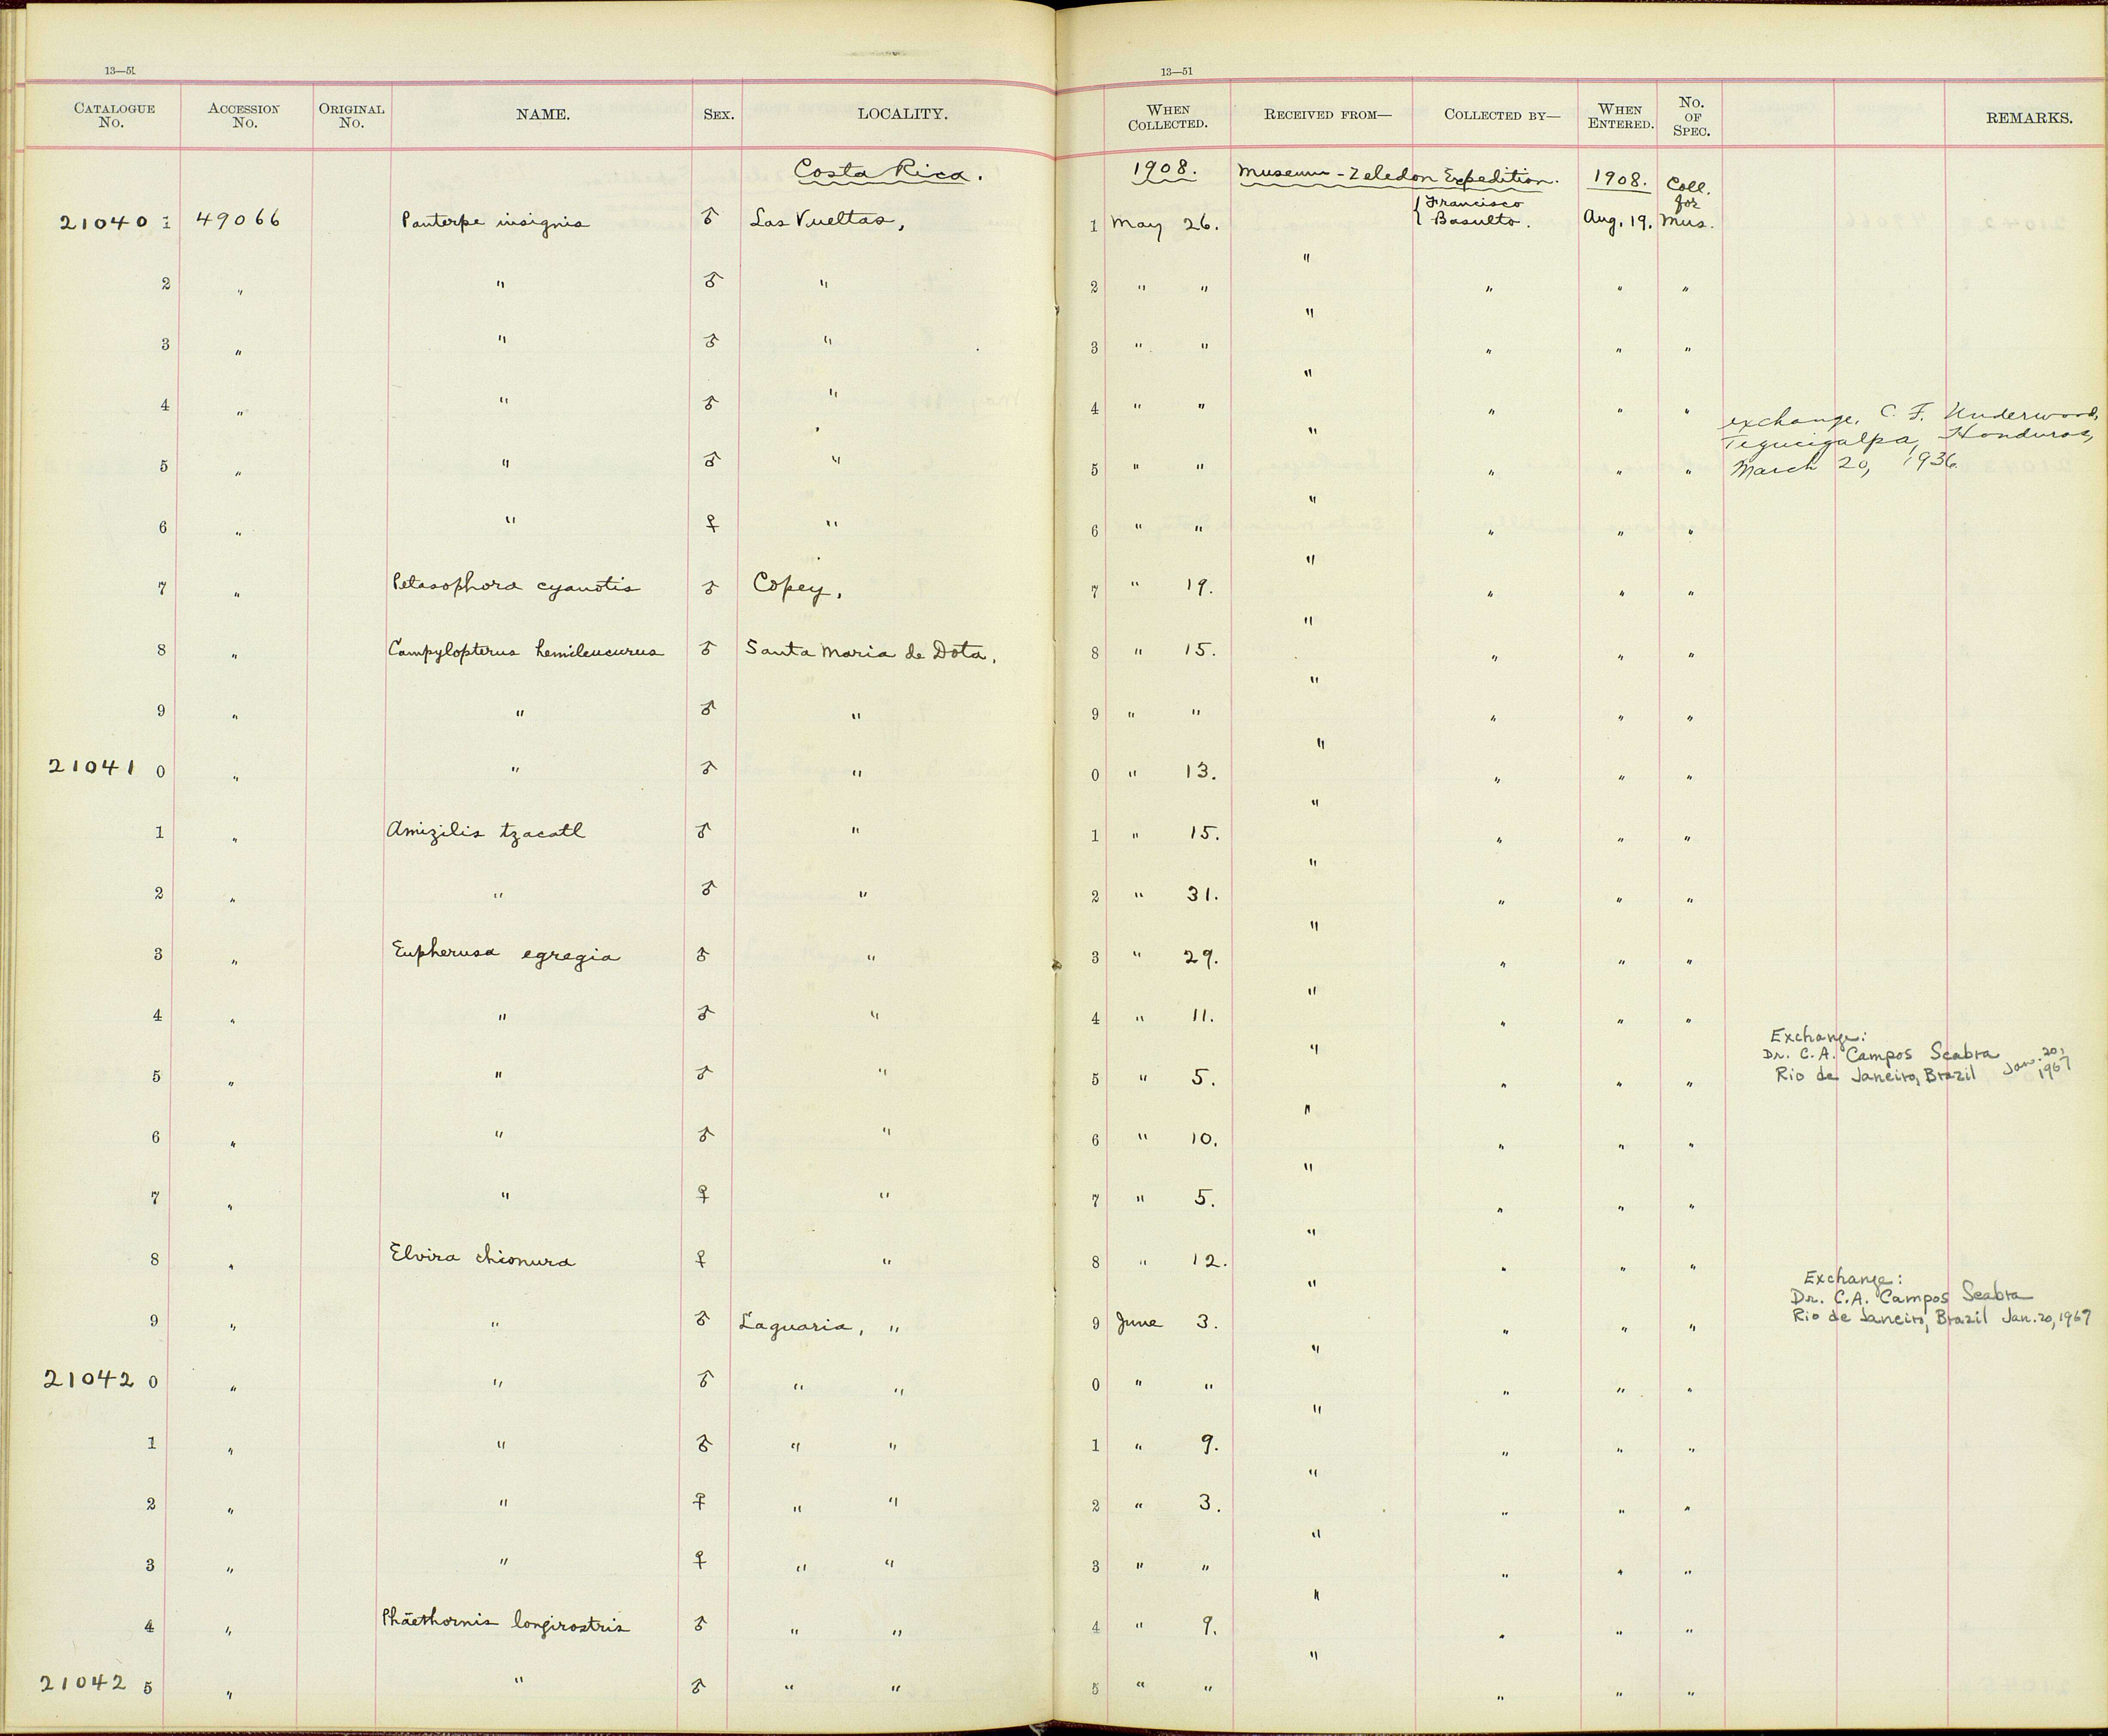 13—51
13—51
CATALOGUE No. ACCESSION No. ORIGINAL No. NAME. SEX. LOCALITY. WHEN COLLECTED. RECEIVED FROM— COLLECTED BY— WHEN ENTERED. No. OF SPEC. REMARKS.
Costa Rica. 1908. Museum-Zeledon Expedition. 1908. Coll. for Mus.
21040 1 49066 Panterpe insignis ♂ Las Vueltas, 1 May 26. { Francisco Basulto. Aug. 19.
2 " " ♂ " 2 " " " " " "
3 " " ♂ " 3 " " " " " "
4 " " ♂ " 4 " " " " " " exchange, C. F. Underwood,
Tegucigalpa, Honduras,
March 20, 1936
5 " " ♂ " 5 " " " " " "
6 " " ♀ " 6 " " " " " "
7 " Petasophora cyanotis ♂ Copey, 7 " 19. " " " "
8 " Campylopterus hemileucurus ♂ Santa Maria de Dota, 8 " 15. " " " "
9 " " ♂ " 9 " " " " " "
21041 0 " " ♂ " 0 " 13. " " " "
1 " Amizilis tzacatl ♂ " 1 " 15. " " " "
2 " " ♂ " 2 " 31. " " " "
3 " Eupherusa egregia ♂ " 3 " 29. " " " "
4 " " ♂ " 4 " 11. " " " "
5 " " ♂ " 5 " 5. " " " " Exchange:
Dr. C.A. Campos Seabra
Rio de Janeiro, Brazil Jan. 20, 1967
6 " " ♂ " 6 " 10. " " " "
7 " " ♀ " 7 " 5. " " " "
8 " Elvira chionura ♀ " 8 " 12. " " " "
9 " " ♂ Laguaria, " 9 June 3. " " " " Exchange:
Dr. C.A. Campos Seabra
Rio de Janeiro, Brazil Jan. 20, 1967
21042 0 " " ♂ " " 0 " " " " " "
1 " " ♂ " " 1 " 9. " " " "
2 " " ♀ " " 2 " 3. " " " "
3 " " ♀ " " 3 " " " " " "
4 " Phäethornis longirostris ♂ " " 4 " 9. " " " "
21042 5 " " ♂ " " 5 " " " " " "